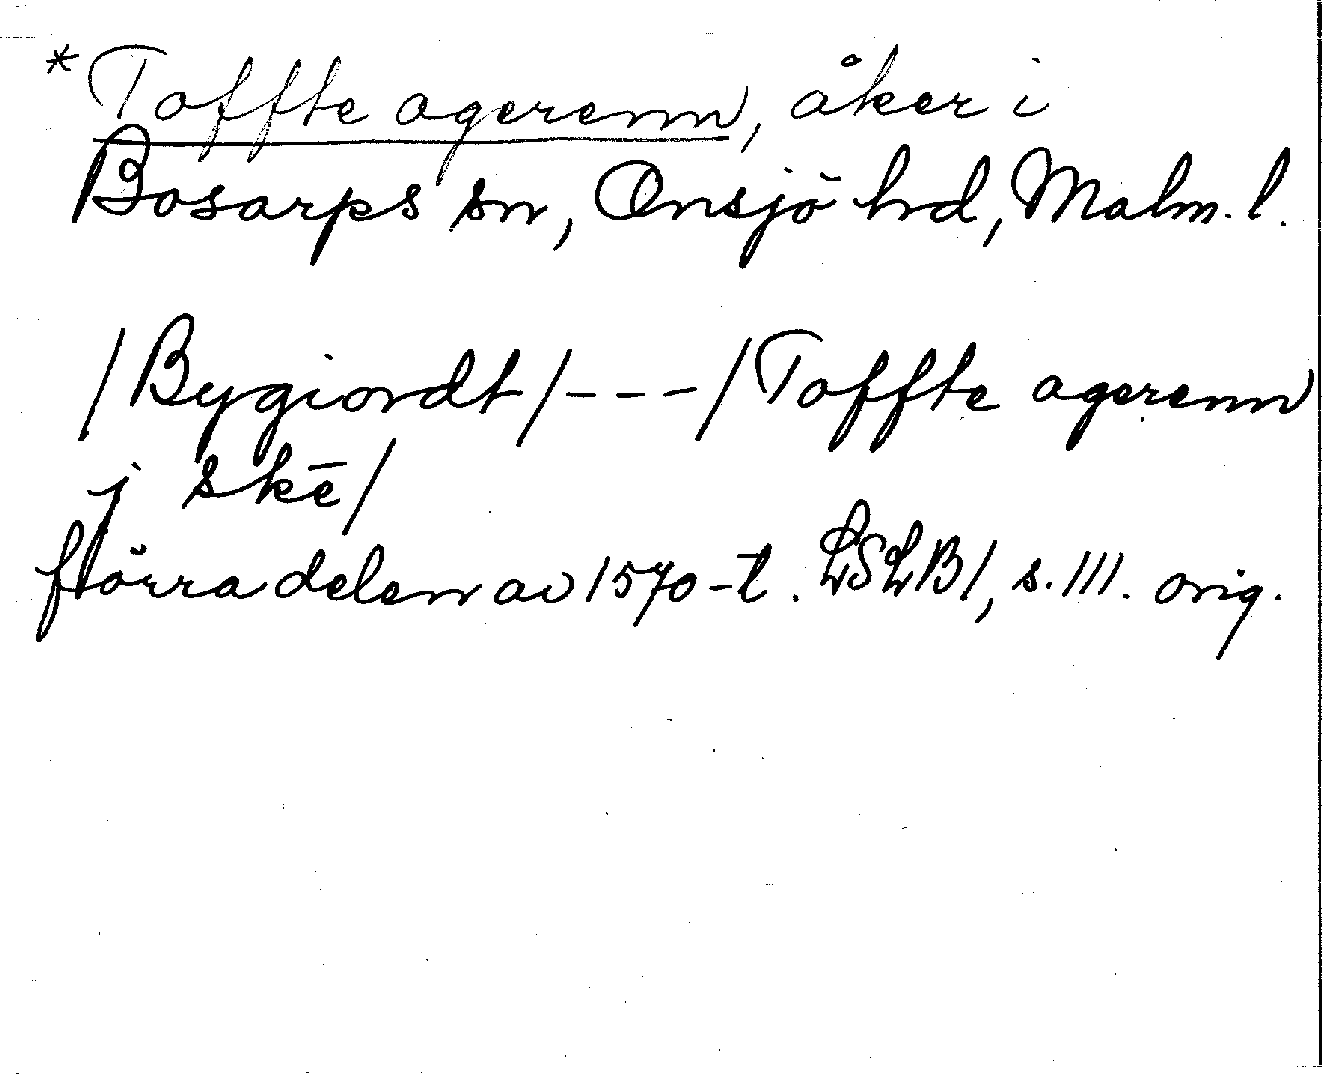 *Toffte agerenn, åker i
Bosarps sn, Onsjö hd, Malm. l.
/Bygiordt/---/Toffte agerenn
j skē/
förra delen av 1570-t. LSLB1, s. 111. orig.